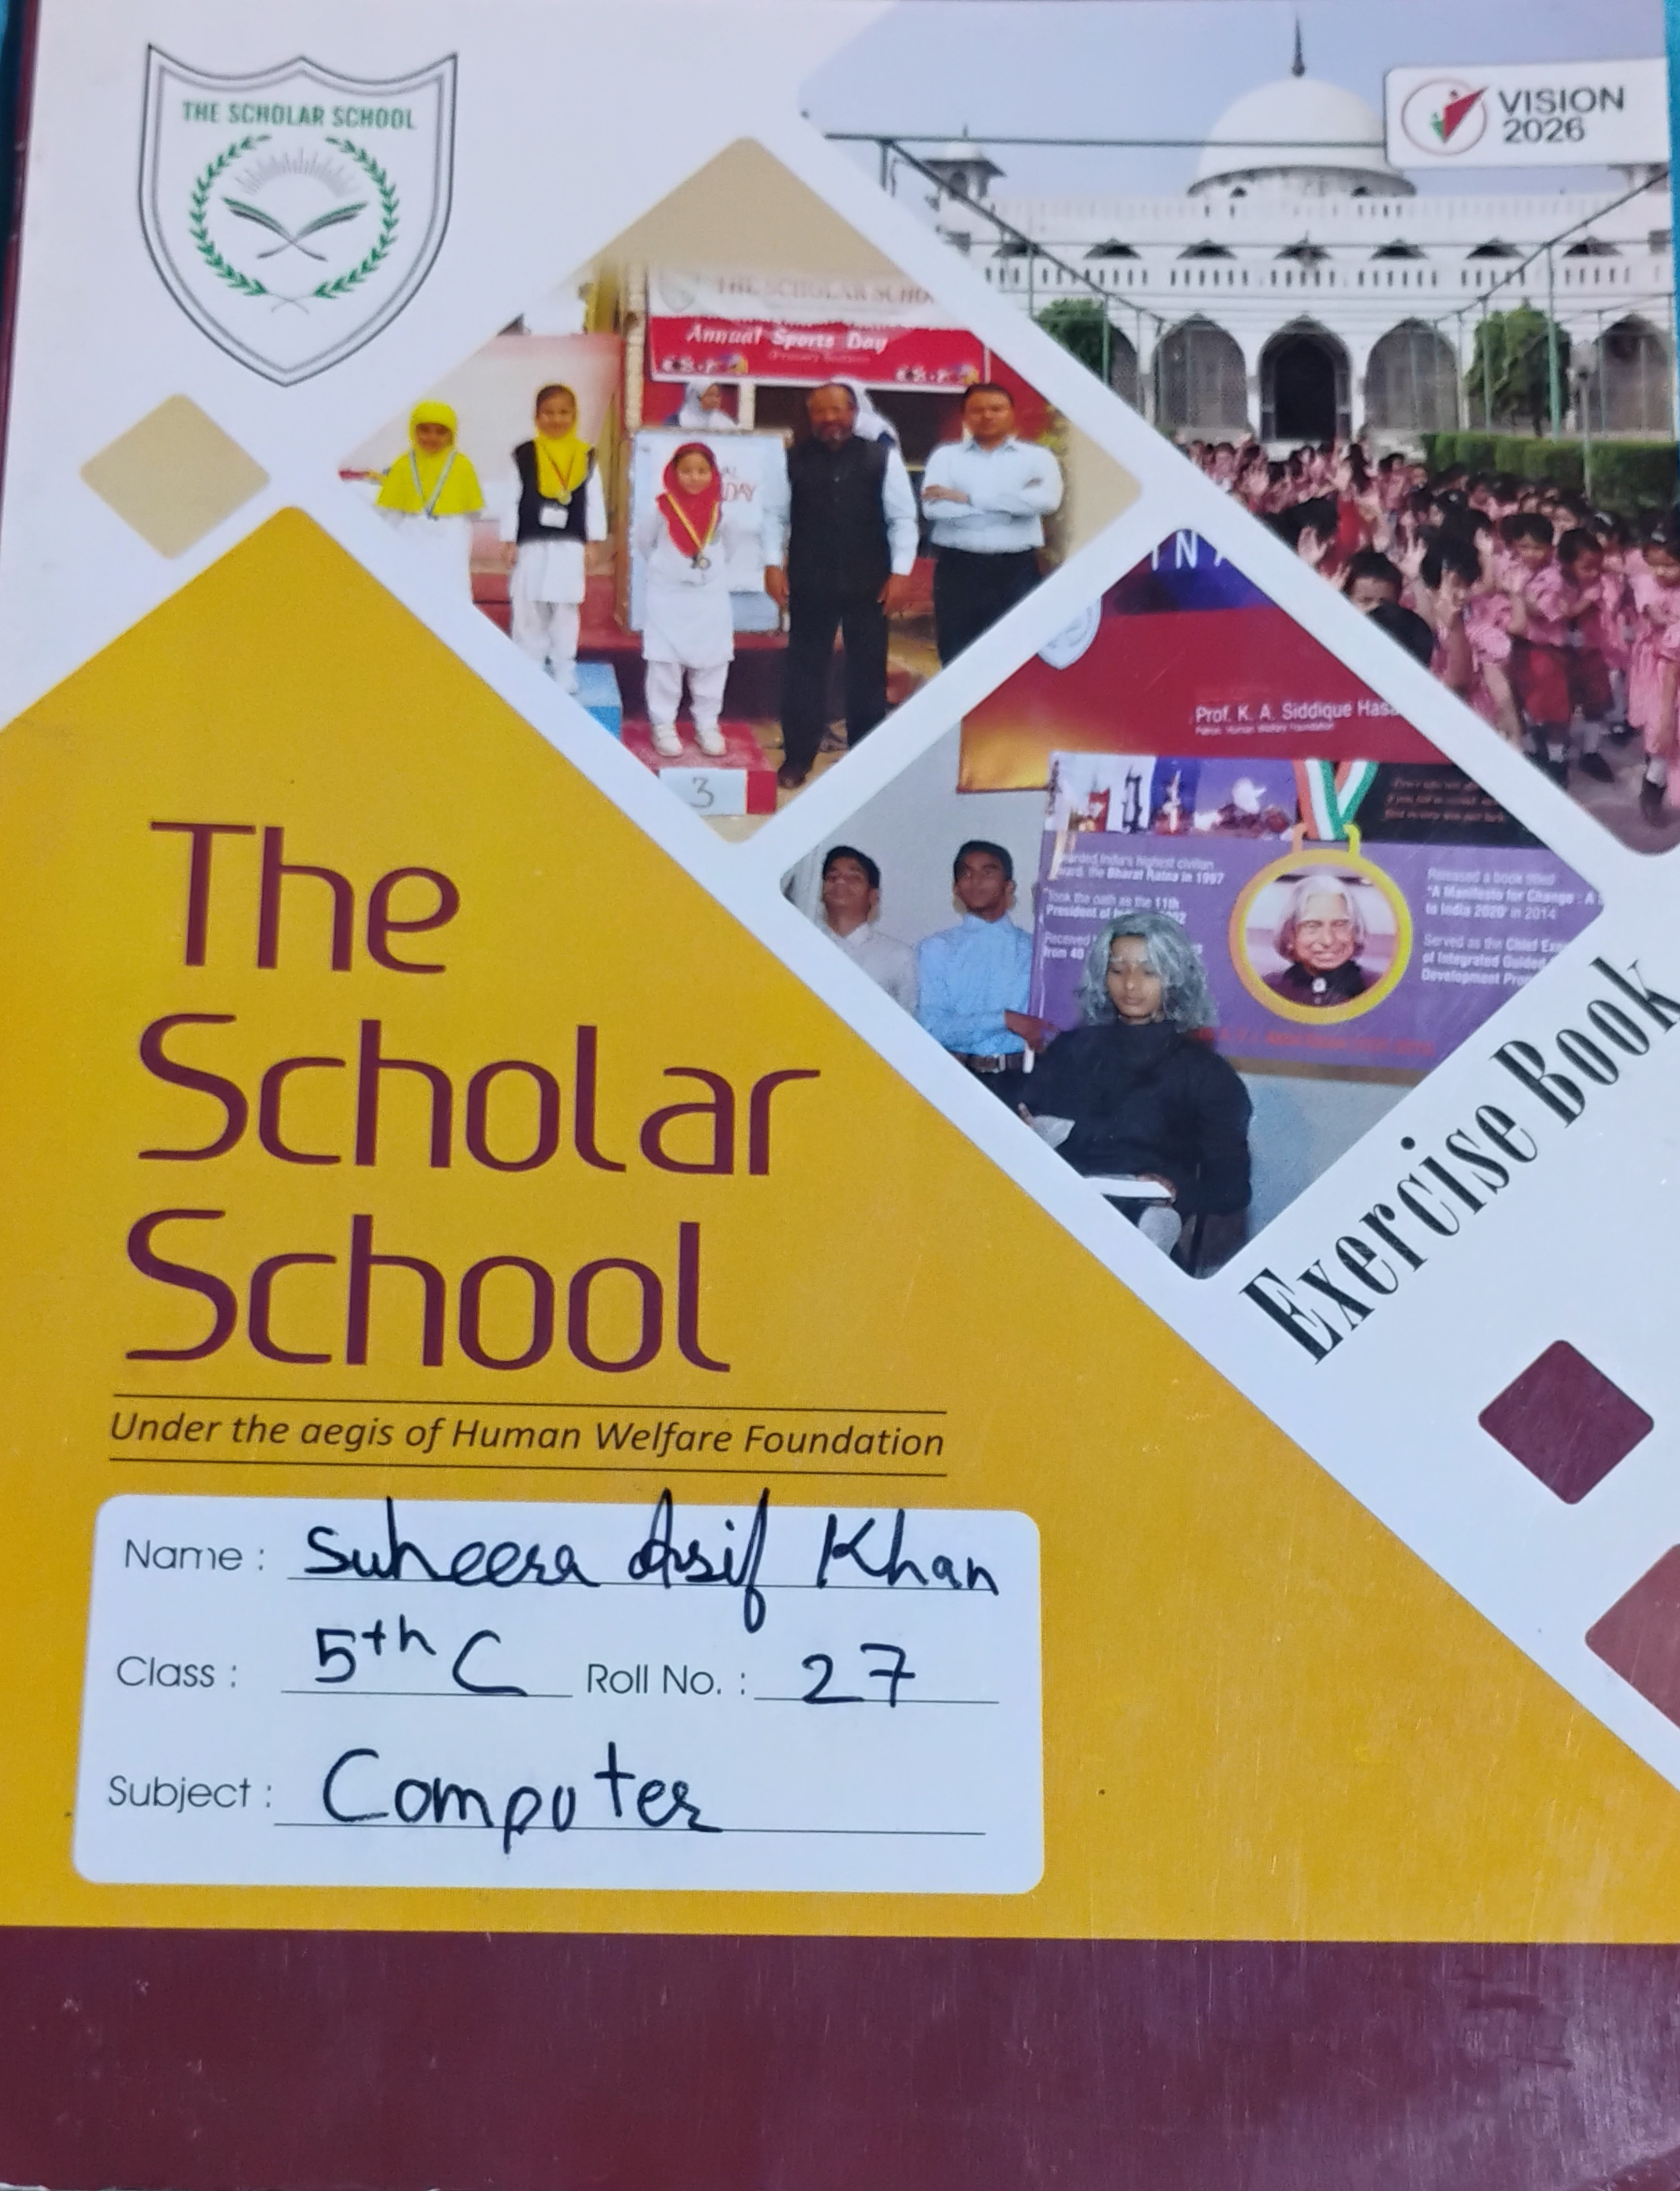 THE SCHOLAR SCHOOL
VISION
2026
THE SCHOLAR SCHO
Annual Sports Day
DAY
3
INA
Prof. K. A. Siddique Hasa
Patron, Human Welfare Foundation
warded India's highest civilian
ward, the Bharat Ratna in 1997
Took the oath as the 11th
President of
Received
from 40
Released a book titled
"A Manifesto for Change : A
to India 2020" in 2014
Served as the Chief Exe
of Integrated Guided
Development Pro
Exercise Book
The
Scholar
School
Under the aegis of Human Welfare Foundation
Name : Suheera Asif Khan
Class : 5th C Roll No. : 27
Subject : Computer